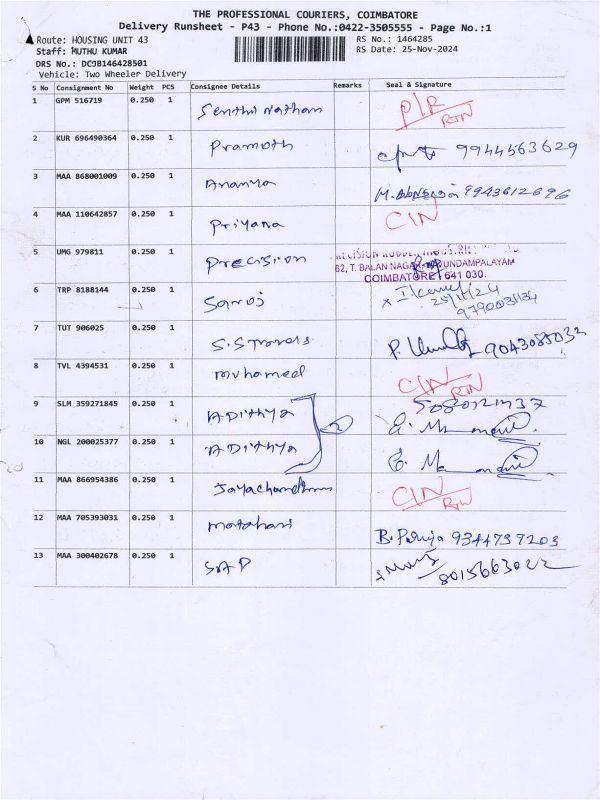 THE PROFESSIONAL COURIERS, COIMBATORE
Delivery Runsheet - P43 - Phone No.:0422-3505555 - Page No.:1
Route: HOUSING UNIT 43
RS No.: 1464285
Staff: MUTHU KUMAR
RS Date: 25-Nov-2024
DRS No.: DCJB146428501
Vehicle: Two Wheeler Delivery
S No Consignment No Weight PCS Consignee Details Remarks Seal & Signature
1 GPM 516719 0.250 1 Senthil Nathan P/R RTN
2 KUR 696490364 0.250 1 Pramoth 9944563629
3 MAA 868001009 0.250 1 Ananya 9943612696
4 MAA 110642857 0.250 1 Priyana CIN
5 UMG 979811 0.250 1 Precision
62, T. BALAN NAGAR,
COIMBATORE 641 030.
6 TRP 8188144 0.250 1 Saroj
25/11/24
7 TUT 906025 0.250 1 9043085032
8 TVL 4394531 0.250 1 Muhameed CIN RTN
9 SLM 359271845 0.250 1 ADithya
10 NGL 200025377 0.250 1 ADithya 2
11 MAA 866954386 0.250 1 CIN RTN
12 MAA 705393031 0.250 1 Matahari 9344737203
13 MAA 300402678 0.250 1 SAP 8015663022